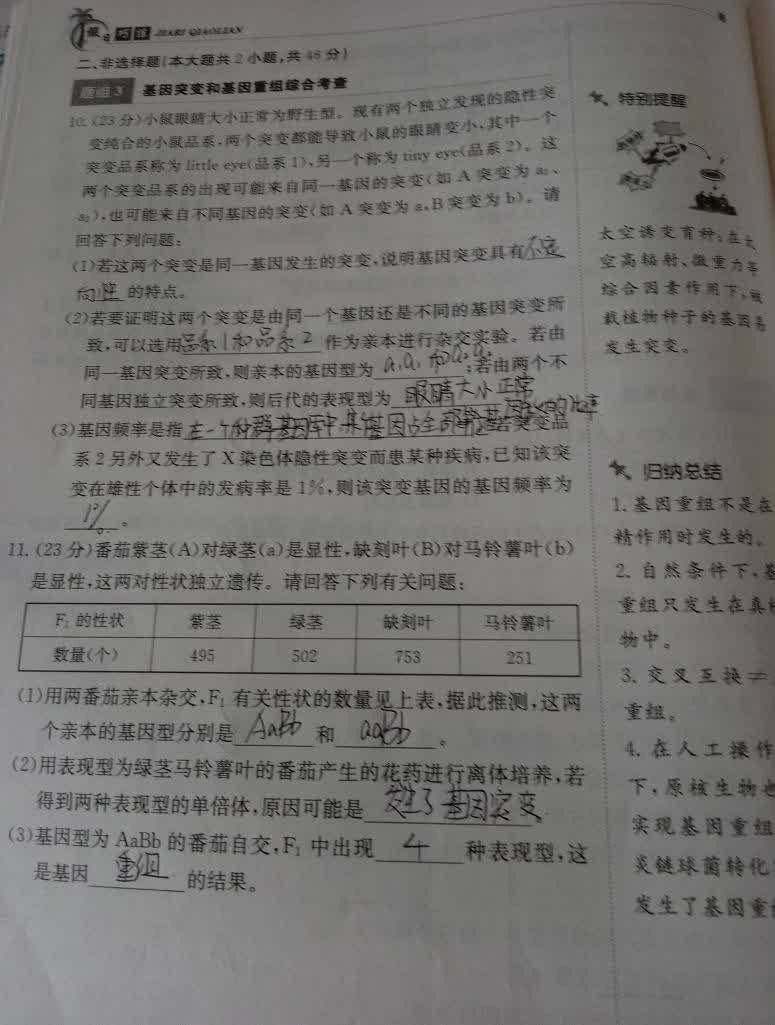 假日巧练 JIARI QIAOLIAN
二、非选择题(本大题共2小题,共46分)
题组3 基因突变和基因重组综合考查
10.(23分)小鼠眼睛大小正常为野生型。现有两个独立发现的隐性突
变纯合的小鼠品系,两个突变都能导致小鼠的眼睛变小,其中一个
突变品系称为little eye(品系1),另一个称为tiny eye(品系2)。这
两个突变品系的出现可能来自同一基因的突变(如A突变为a₁、
a₂),也可能来自不同基因的突变(如A突变为a,B突变为b)。请
回答下列问题:
(1)若这两个突变是同一基因发生的突变,说明基因突变具有不定
向性的特点。
(2)若要证明这两个突变是由同一个基因还是不同的基因突变所
致,可以选用品系1和品系2作为亲本进行杂交实验。若由
同一基因突变所致,则亲本的基因型为a₁a₁和a₂a₂;若由两个不
同基因独立突变所致,则后代的表现型为眼睛大小正常
(3)基因频率是指在一个种群基因库中某基因占全部等位基因数的比率 若突变品
系2另外又发生了X染色体隐性突变而患某种疾病,已知该突
变在雄性个体中的发病率是1%,则该突变基因的基因频率为
1%。
11.(23分)番茄紫茎(A)对绿茎(a)是显性,缺刻叶(B)对马铃薯叶(b)
是显性,这两对性状独立遗传。请回答下列有关问题:
F₁的性状 紫茎 绿茎 缺刻叶 马铃薯叶
数量(个) 495 502 753 251
(1)用两番茄亲本杂交,F₁有关性状的数量见上表,据此推测,这两
个亲本的基因型分别是AaBb和aaBb。
(2)用表现型为绿茎马铃薯叶的番茄产生的花药进行离体培养,若
得到两种表现型的单倍体,原因可能是发生了基因突变。
(3)基因型为AaBb的番茄自交,F₁中出现4种表现型,这
是基因重组的结果。
特别提醒
太空诱变育种:在太
空高辐射、微重力等
综合因素作用下,被
载植物种子的基因易
发生突变。
归纳总结
1.基因重组不是在
精作用时发生的。
2.自然条件下,基
重组只发生在真核
物中。
3.交叉互换≠
重组。
4.在人工操作
下,原核生物也
实现基因重组
炎链球菌转化
发生了基因重组